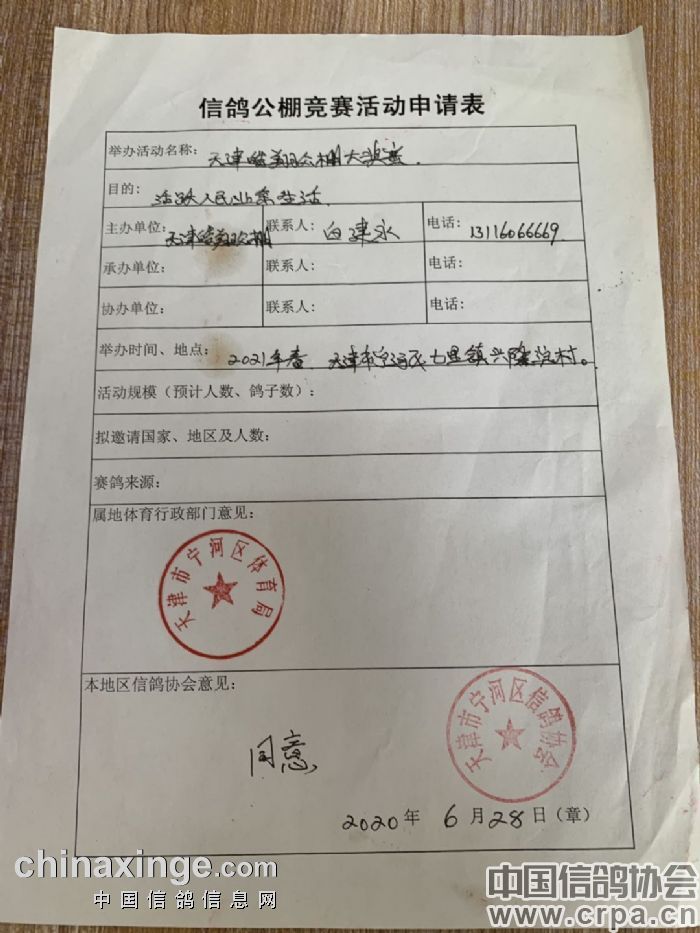 信鸽公棚竞赛活动申请表
举办活动名称: 天津 翔公棚大奖赛.
目的: 活跃人民业余生活.
主办单位: 天津 翔公棚 联系人: 白建永 电话: 13116066669.
承办单位: 联系人: 电话:
协办单位: 联系人: 电话:
举办时间、地点: 2021年春. 天津市宁河区七里镇兴隆淀村。
活动规模（预计人数、鸽子数）:
拟邀请国家、地区及人数:
赛鸽来源:
属地体育行政部门意见:
天津市宁河区体育局
本地区信鸽协会意见:
天津市宁河区信鸽协会
同意
2020年 6月28日（章）
chinaxinge.com
中国信鸽信息网
中国信鸽协会
www.crpa.cn